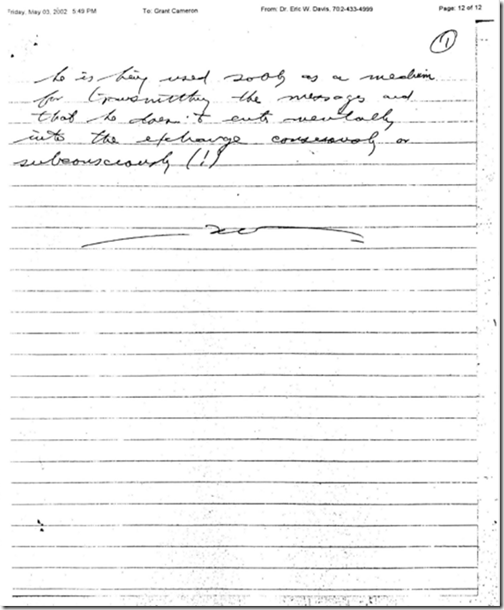 Friday, May 03, 2002 5:49 PM To: Grant Cameron From: Dr. Eric W. Davis, 702-433-4999 Page: 12 of 12
7
he is being used solely as a medium
for transmitting the messages and
that he doesn't enter mentally
into the exchange consciously or
subconsciously (!)